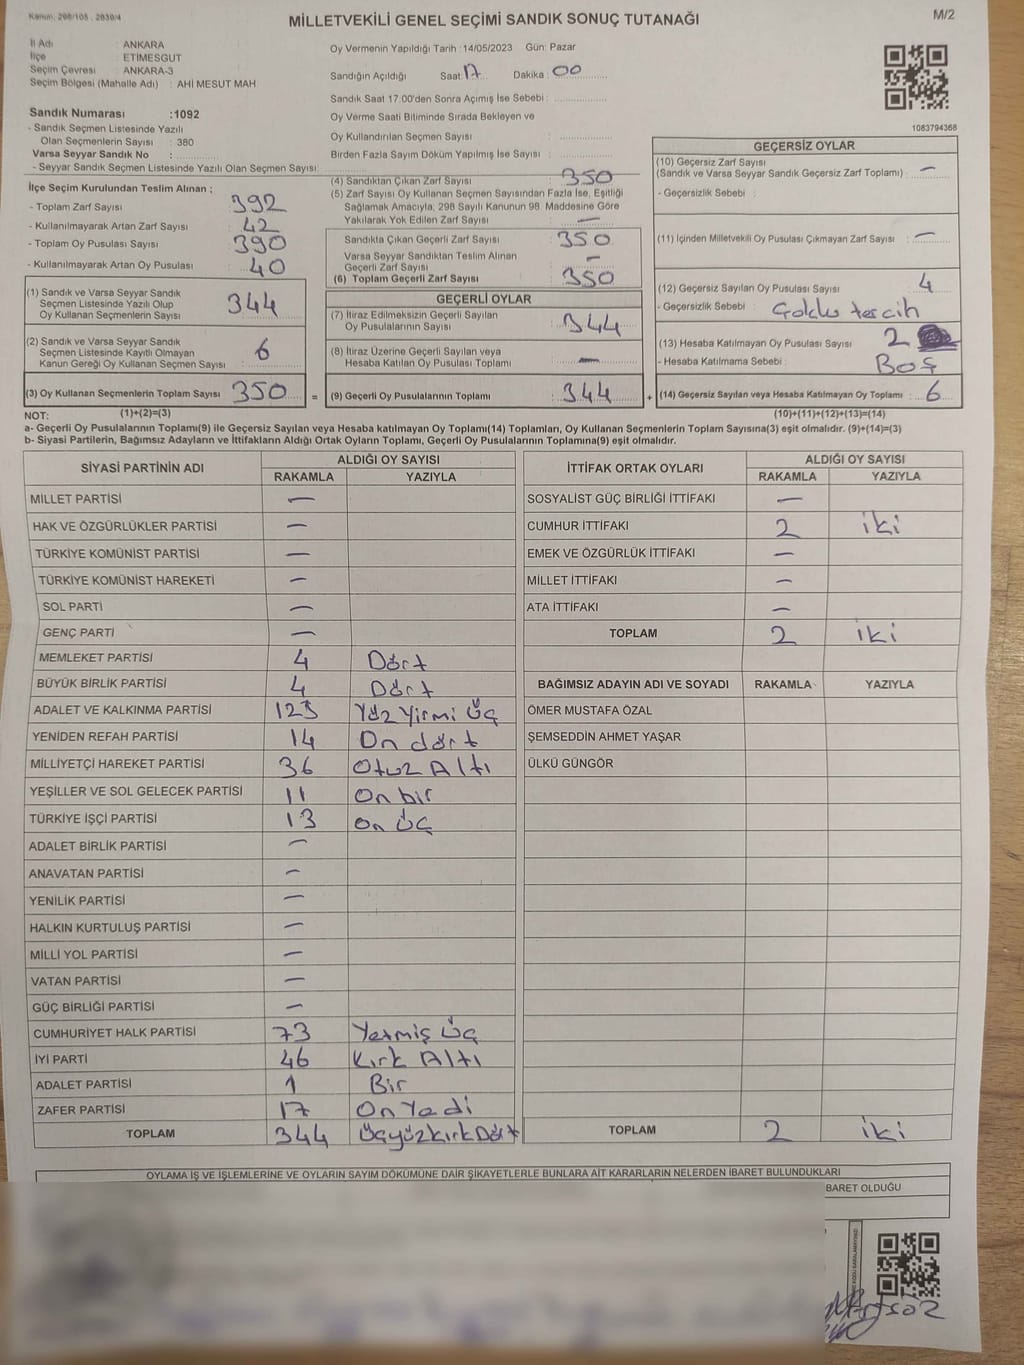 Kanun: 298/105 . 2839/4
MİLLETVEKİLİ GENEL SEÇİMİ SANDIK SONUÇ TUTANAĞI
M/2
İl Adı : ANKARA
İlçe : ETİMESGUT
Seçim Çevresi : ANKARA-3
Seçim Bölgesi (Mahalle Adı) : AHİ MESUT MAH
Oy Vermenin Yapıldığı Tarih :14/05/2023 Gün: Pazar
Sandığın Açıldığı Saat:17 Dakika :00
Sandık Saat 17:00'den Sonra Açımış İse Sebebi :
Oy Verme Saati Bitiminde Sırada Bekleyen ve
Oy Kullandırılan Seçmen Sayısı :
Birden Fazla Sayım Döküm Yapılmış İse Sayısı :
1083794368
Sandık Numarası :1092
- Sandık Seçmen Listesinde Yazılı
Olan Seçmenlerin Sayısı : 380
Varsa Seyyar Sandık No :
- Seyyar Sandık Seçmen Listesinde Yazılı Olan Seçmen Sayısı:
İlçe Seçim Kurulundan Teslim Alınan :
- Toplam Zarf Sayısı : 392
- Kullanılmayarak Artan Zarf Sayısı : 42
- Toplam Oy Pusulası Sayısı : 390
- Kullanılmayarak Artan Oy Pusulası : 40
(1) Sandık ve Varsa Seyyar Sandık
Seçmen Listesinde Yazılı Olup
Oy Kullanan Seçmenlerin Sayısı : 344
(2) Sandık ve Varsa Seyyar Sandık
Seçmen Listesinde Kayıtlı Olmayan
Kanun Gereği Oy Kullanan Seçmen Sayısı : 6
(3) Oy Kullanan Seçmenlerin Toplam Sayısı : 350 =
(1)+(2)=(3)
(4) Sandıktan Çıkan Zarf Sayısı : 350
(5) Zarf Sayısı Oy Kullanan Seçmen Sayısından Fazla İse, Eşitliği
Sağlamak Amacıyla, 298 Sayılı Kanunun 98. Maddesine Göre
Yakılarak Yok Edilen Zarf Sayısı : —
Sandıkta Çıkan Geçerli Zarf Sayısı : 350
Varsa Seyyar Sandıktan Teslim Alınan
Geçerli Zarf Sayısı : —
(6) Toplam Geçerli Zarf Sayısı : 350
GEÇERLİ OYLAR
(7) İtiraz Edilmeksizin Geçerli Sayılan
Oy Pusulalarının Sayısı : 344
(8) İtiraz Üzerine Geçerli Sayılan veya
Hesaba Katılan Oy Pusulası Toplamı : —
(9) Geçerli Oy Pusulalarının Toplamı : 344 +
GEÇERSİZ OYLAR
(10) Geçersiz Zarf Sayısı
(Sandık ve Varsa Seyyar Sandık Geçersiz Zarf Toplamı) : —
- Geçersizlik Sebebi :
(11) İçinden Milletvekili Oy Pusulası Çıkmayan Zarf Sayısı : —
(12) Geçersiz Sayılan Oy Pusulası Sayısı : 4
- Geçersizlik Sebebi : Çoklu tercih
(13) Hesaba Katılmayan Oy Pusulası Sayısı : 2
- Hesaba Katılmama Sebebi : Boş
(14) Geçersiz Sayılan veya Hesaba Katılmayan Oy Toplamı : 6
(10)+(11)+(12)+(13)=(14)
NOT:
a- Geçerli Oy Pusulalarının Toplamı(9) ile Geçersiz Sayılan veya Hesaba katılmayan Oy Toplamı(14) Toplamları, Oy Kullanan Seçmenlerin Toplam Sayısına(3) eşit olmalıdır. (9)+(14)=(3)
b- Siyasi Partilerin, Bağımsız Adayların ve İttifakların Aldığı Ortak Oyların Toplamı, Geçerli Oy Pusulalarının Toplamına(9) eşit olmalıdır.
SİYASİ PARTİNİN ADI ALDIĞI OY SAYISI
RAKAMLA YAZIYLA
MİLLET PARTİSİ —
HAK VE ÖZGÜRLÜKLER PARTİSİ —
TÜRKİYE KOMÜNİST PARTİSİ —
TÜRKİYE KOMÜNİST HAREKETİ —
SOL PARTİ —
GENÇ PARTİ —
MEMLEKET PARTİSİ 4 Dört
BÜYÜK BİRLİK PARTİSİ 4 Dört
ADALET VE KALKINMA PARTİSİ 123 Yüz Yirmi Üç
YENİDEN REFAH PARTİSİ 14 On dört
MİLLİYETÇİ HAREKET PARTİSİ 36 Otuz Altı
YEŞİLLER VE SOL GELECEK PARTİSİ 11 On bir
TÜRKİYE İŞÇİ PARTİSİ 13 on Üç
ADALET BİRLİK PARTİSİ —
ANAVATAN PARTİSİ —
YENİLİK PARTİSİ —
HALKIN KURTULUŞ PARTİSİ —
MİLLİ YOL PARTİSİ —
VATAN PARTİSİ —
GÜÇ BİRLİĞİ PARTİSİ —
CUMHURİYET HALK PARTİSİ 73 Yetmiş Üç
İYİ PARTİ 46 Kırk Altı
ADALET PARTİSİ 1 Bir
ZAFER PARTİSİ 17 On Yedi
TOPLAM 344 ÜçyüzkırkDört
İTTİFAK ORTAK OYLARI ALDIĞI OY SAYISI
RAKAMLA YAZIYLA
SOSYALİST GÜÇ BİRLİĞİ İTTİFAKI —
CUMHUR İTTİFAKI 2 iki
EMEK VE ÖZGÜRLÜK İTTİFAKI —
MİLLET İTTİFAKI —
ATA İTTİFAKI —
TOPLAM 2 iki
BAĞIMSIZ ADAYIN ADI VE SOYADI RAKAMLA YAZIYLA
ÖMER MUSTAFA ÖZAL
ŞEMSEDDİN AHMET YAŞAR
ÜLKÜ GÜNGÖR
TOPLAM 2 iki
OYLAMA İŞ VE İŞLEMLERİNE VE OYLARIN SAYIM DÖKÜMÜNE DAİR ŞİKAYETLERLE BUNLARA AİT KARARLARIN NELERDEN İBARET BULUNDUKLARI
BARET OLDUĞU